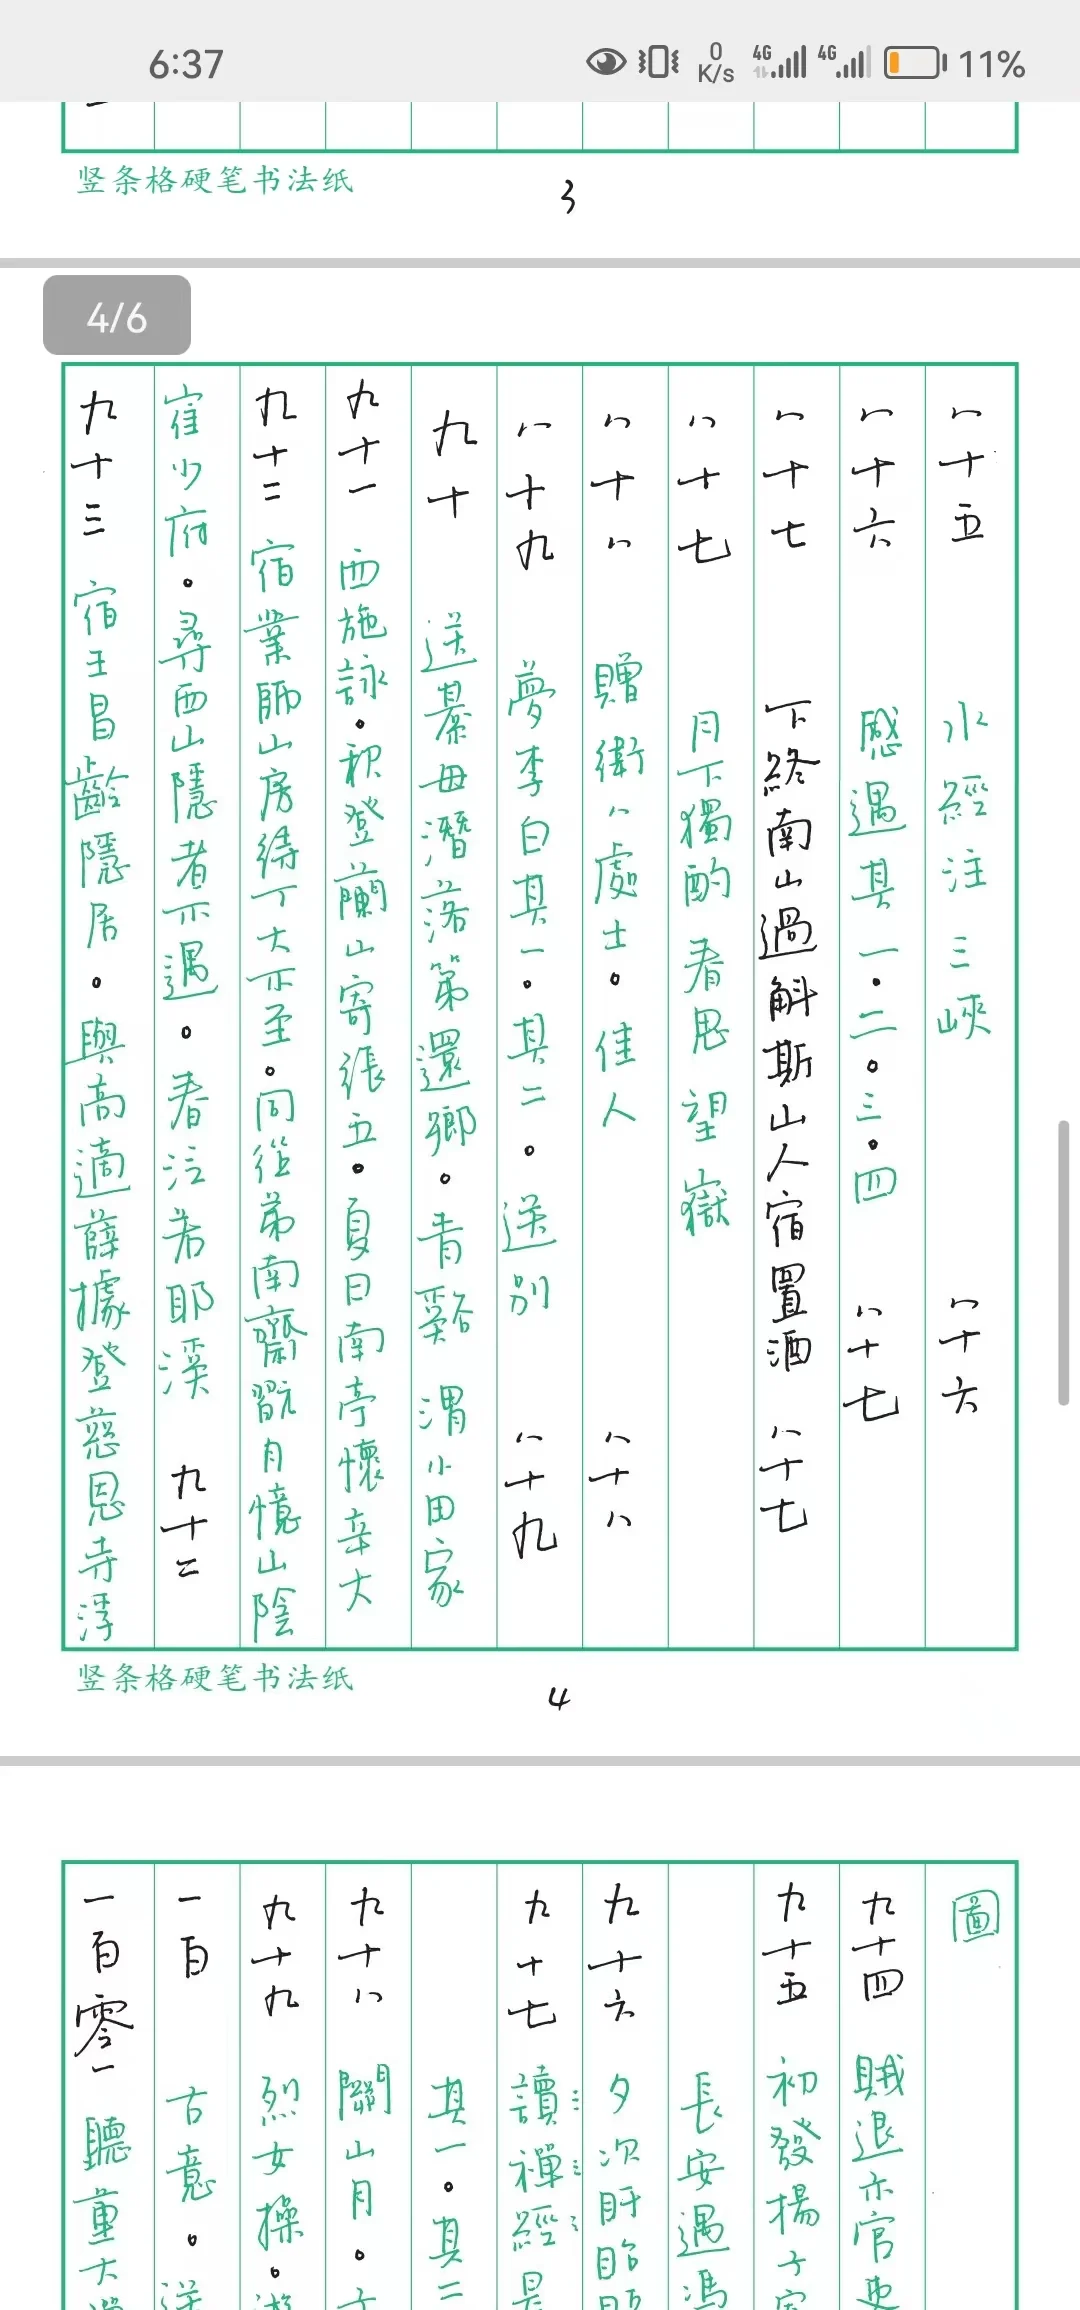 6:37
0
K/s
4G
4G
11%
竖条格硬笔书法纸
3
4/6
八十五 水經注三峽 八十六
八十六 感遇其一。二。三。四 八十七
八十七 下終南山過斛斯山人宿置酒 八十七
八十七 月下獨酌 春思 望嶽
八十八 贈衛八處士。佳人 八十八
八十九 夢李白其一。其二。送別 八十九
九十 送綦毋潛落第還鄉。青谿 渭川田家
九十一 西施詠。秋登蘭山寄張五。夏日南亭懷辛大
九十二 宿業師山房待丁大不至。同從弟南齋翫月憶山陰
崔少府。尋西山隱者不遇。春泛若耶溪 九十二
九十三 宿王昌齡隱居。與高適薛據登慈恩寺浮
竖条格硬笔书法纸
4
圖
九十四 賊退示官吏
九十五 初發揚子
長安遇馮
九十六 夕次盱眙
九十七 讀禪經
其一。其二
九十八 關山月。子
九十九 烈女操。遊
一百 古意。送
一百零一 聽董大